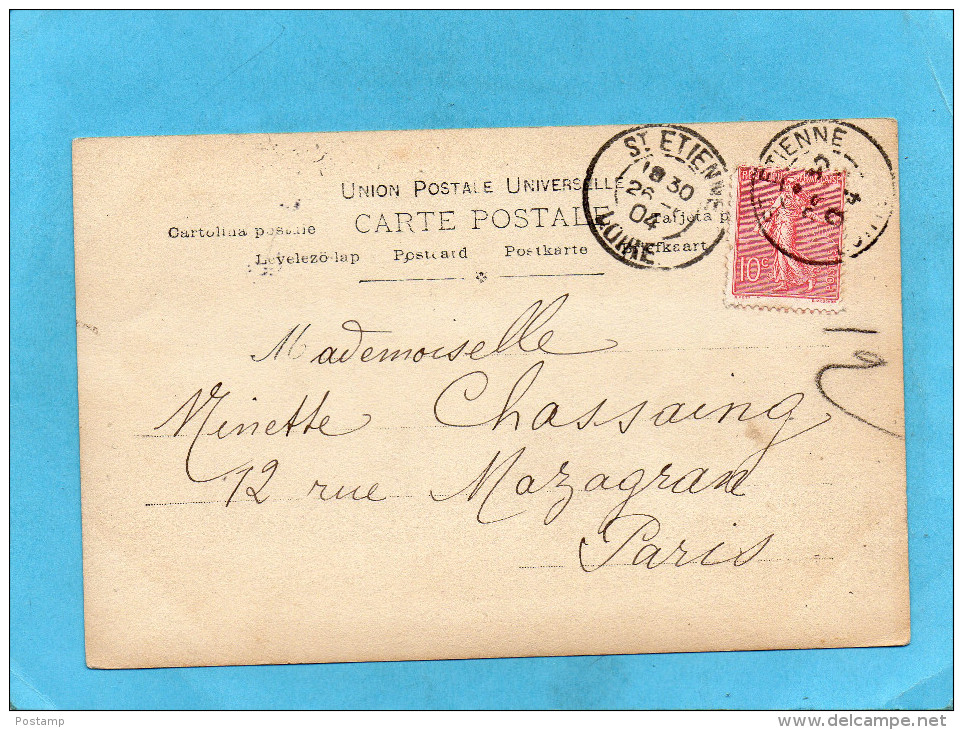 UNION POSTALE UNIVERSELLE
CARTE POSTALE
Cartolina postale
Levelező-lap Postcard Postkarte
ST ETIENNE
18 30
26
04
LOIRE
ETIENNE
10c
Mademoiselle
Minette Chassaing
12 rue Mazagran
Paris
Postamp
www.delcampe.net